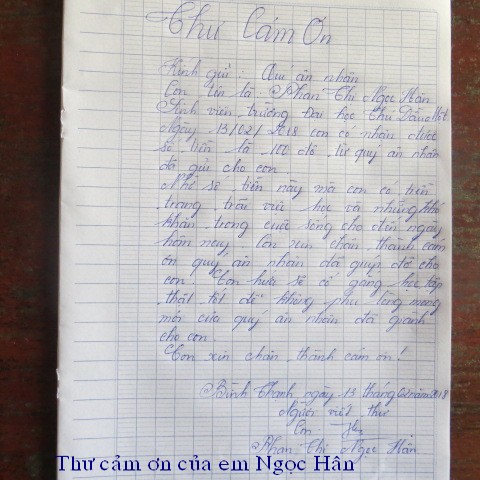 Thư Cám Ơn
Kính gửi : Quí ân nhân
Con tên là Phan Thị Ngọc Hân
Sinh viên trường Đại học Thủ Dầu Một
Ngày 13/02/2018 con có nhận được
số tiền là 100 đô từ quý ân nhân
đã gửi cho con.
Nhờ số tiền này mà con có tiền
trang trãi việc học và những khó
khăn trong cuộc sống cho đến ngày
hôm nay. Con xin chân thành cám
ơn quý ân nhân đã giúp đỡ cho
con. Con hứa sẽ cố gắng học tập
thật tốt để không phụ lòng mong
mỏi của quý ân nhân đã giành
cho con.
Con xin chân thành cám ơn!
Bình Thạnh, ngày 13 tháng 02 năm 2018
Người viết thư
Con
Phan Thị Ngọc Hân
Thư cảm ơn của em Ngọc Hân